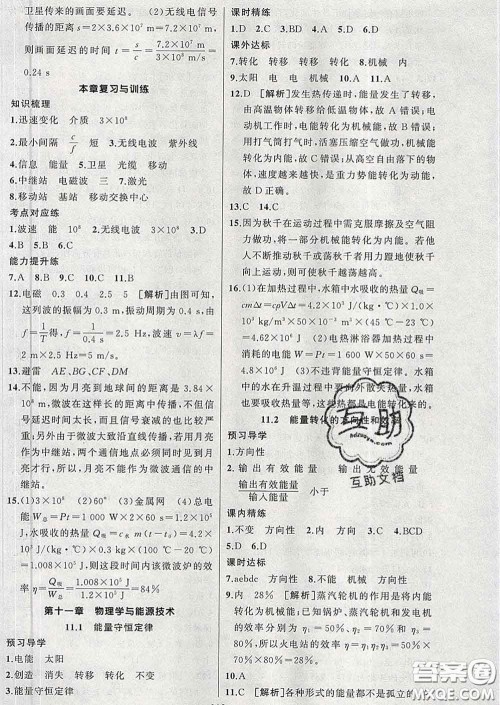 卫星传来的画面要延迟。(2)无线电信号
传输的距离 s=2×3.6×10⁷ m=7.2×10⁷ m
则画面延迟的时间 t=s/c=7.2×10⁷ m/3×10⁸ m/s=
0.24 s
本章复习与训练
知识梳理
1.迅速变化 介质 3×10⁸
2.最小间隔 c/f 短 3.无线电波 紫外线
4.信息 能量 5.卫星 光缆 移动
6.中继站 电磁波 三 7.激光
8.移动站 基地站 移动交换中心
考点对应练
1.波速 能 10⁸ 2.无线电波 3×10⁸ 3.D
4.B 5.B 6.C
能力提升练
7.A 8.C 9.A 10.C 11.B
12.电磁 0.3 0.4 2.5 5 [解析]由图可知,
这列波的振幅为 0.3 m,波动周期为 0.4 s,由
f=1/T得,f=1/0.4 s=2.5 Hz,传播速度 v=λf=
2 m×2.5 Hz=5 m/s。
13.避雷 AE、BG、CF、DM
14.不能,因为月亮到地球间的距离是 3.84×
10⁸ m,微波在这样长的距离中传播,不但信
号延迟时间较大,而且信号衰减也比较严
重;另外由于微波大致沿直线传播,若用月
亮作中继站,只有同时见到月亮的两个地
方才能利用月亮传播信号,而月球又不是
地球的同步卫星,月亮升起后又会落下,见
不到月亮时,就不能作为微波通信的中
继站。
15.(1)3×10⁸ (2)60° (3)金属网 (4)总电
能W总=Pt=1 000 W×120 s=1.2×10⁵ J
有效利用的能量为水吸收的热量:Q吸=
c水m(t-t₀)=4.2×
10³ J/(kg·℃)×0.3 kg×80 ℃=1.008×
10⁵ J,则在这段时间内该微波炉的效
率η=Q吸/W总=1.008×10⁵ J/1.2×10⁵ J=84%
第十一章 物理学与能源技术
11.1 能量守恒定律
预习导学
1.电能 太阳
2.创造 消失 转移 转化 不变
3.能量守恒定律
课时精练
1.B 2.C 3.D 4.B 5.D 6.A
课外达标
7.转化 转移 转移 转化 8.机械
9.太阳 电 电 机械 10.A 11.A
12.D [解析]发生热传递时,能量发生了转移,
由高温物体转移给低温物体,故 A 错误;电
动机工作时,电能转化为机械能,故 B 错误;
用打气筒打气时,活塞压缩空气做功,机械
能转化为内能,故 C 错误;从高空自由落下
的物体,速度越来越快,是重力势能转化为动能,
故 D 正确。
13.C 14.D
15.因为秋千在运动过程中需克服摩擦及空气阻
力做功,将一部分机械能转化为内能。若他人
不断推动秋千或者秋千者用力蹬地,能使秋千
向上运动,使秋千越荡越高。
16.(1)在加热过程中,水箱中水吸收的热量 Q吸=
cmΔt=cρVΔt=4.2×10³ J/(kg·℃)×1.0×
10³ kg/m³×50×10⁻³ m³×(45 ℃-23 ℃)=
4.62×10⁶ J (2)电热淋浴器加热过程中
消耗的电能 W=Pt=1 000 W×5 000 s=
5×10⁶ J (3)水箱中水吸收的热量小于消
耗的电能,水在升温过程中要向外散失热量,水箱
也要吸收热量 (4)不违背能量守恒定律。
11.2 能量转化的方向性和效率
预习导学
1.方向性
2.输出有效能量 输出无效能量
输出有效能量/输入能量 小于
课内精练
1.不变 方向性 2.C 3.C 4.BCD
5.D 6.D
课时达标
7.aebdc 方向性 8.不能 机械 方向性
9.内 28% [解析]蒸汽轮机的作用是将内能
转化为机械能,因锅炉、蒸汽轮机和发电机
的效率分别为 η₁=50%、η₂=70%、η₃=80%,
所以火电站的效率 η=η₁·η₂·η₃=50%×
70%×80%=28%。
10.A
11.C [解析]各种形式的能量都不是孤立的,
互助
互助文档
答案圈
MXQE.COM